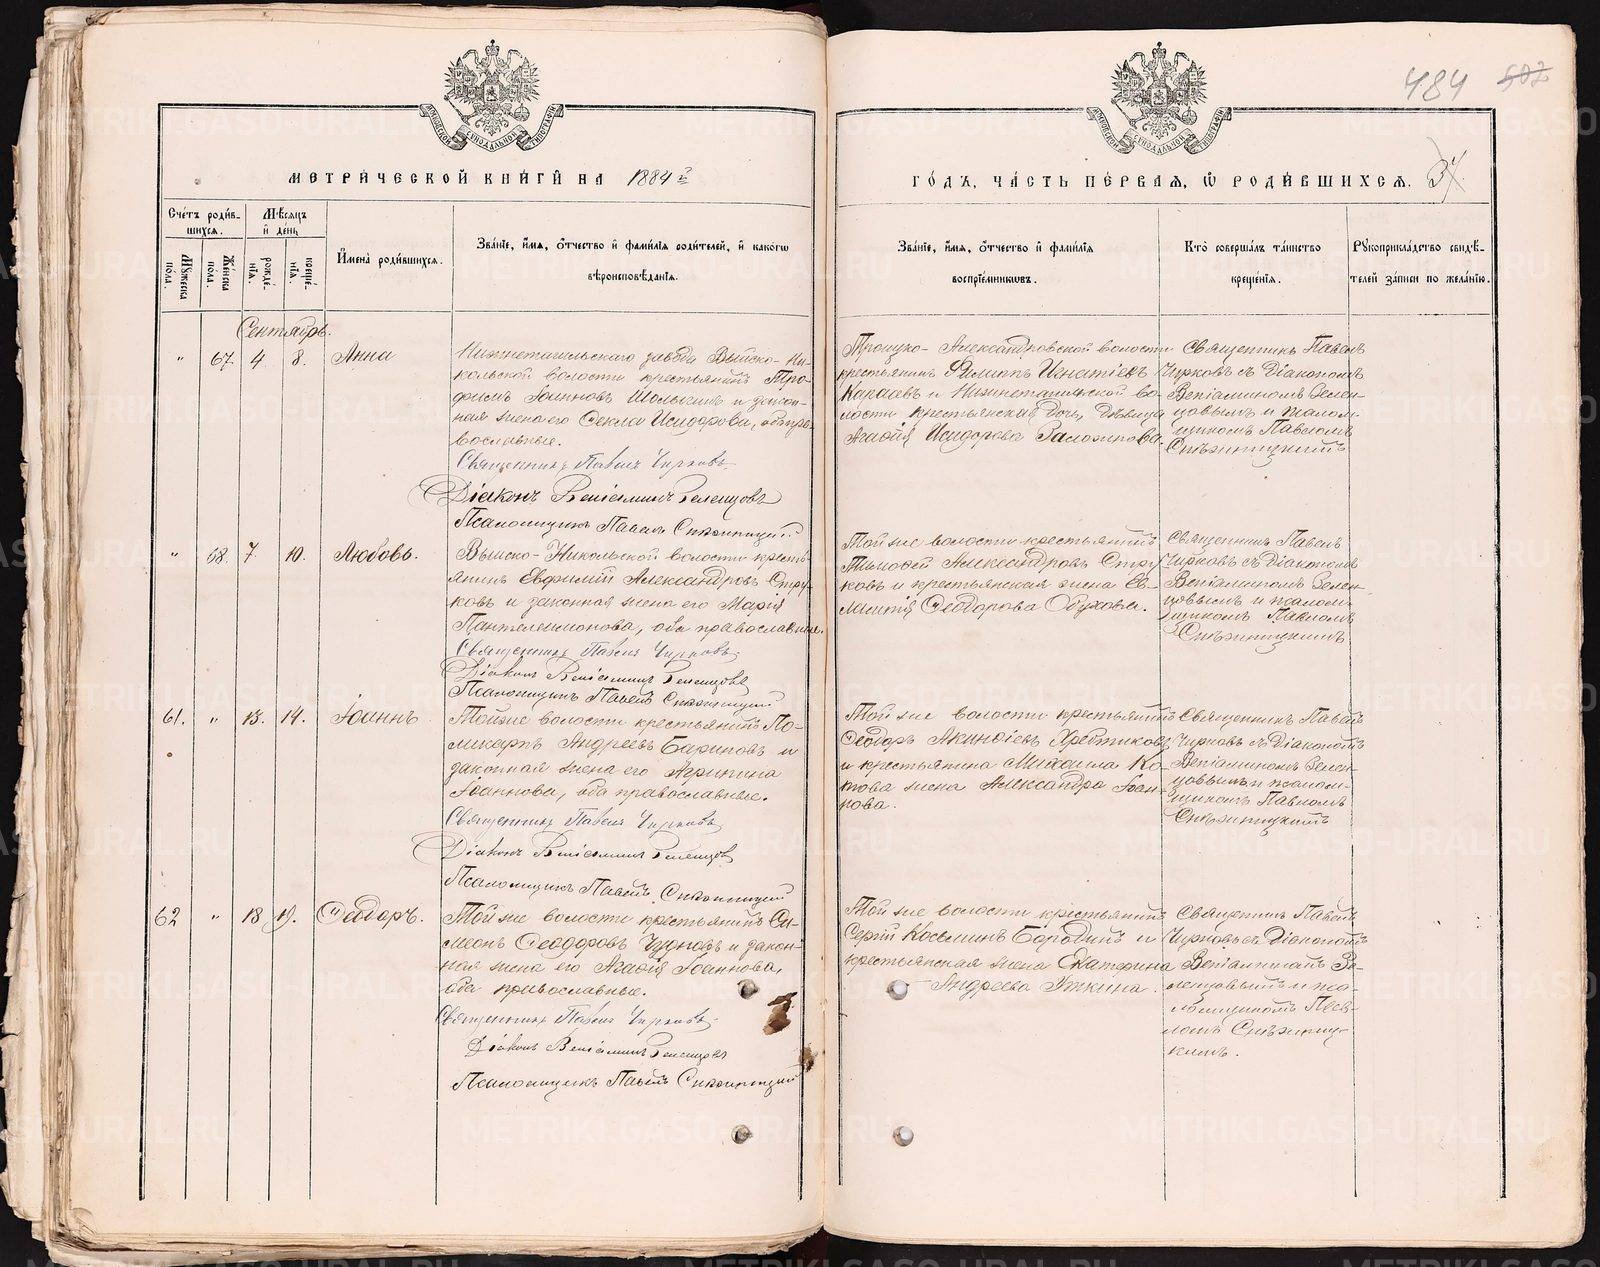 484 502
МЕТРИЧЕСКОЙ КНИГИ НА 1884й
ГОДЪ, ЧАСТЬ ПЕРВАЯ, Ѡ РОДИВШИХСЯ. 37
Счетъ родив-
шихся.
Мѣсяцъ
и день
Мужеска
пола.
Женска
пола.
рожде-
нія.
креще-
нія.
Имена родившихся.
Званіе, имя, отчество и фамилія родителей, и какогѡ
вѣроисповѣданія.
Званіе, имя, отчество и фамилія
воспріемникѡвъ.
Кто совершалъ таинство
крещенія.
Рукоприкладство свидѣ-
телей записи по желанію.
Сентябрь.
" 67. 4 8. Анна
Нижнетагильскаго завода Выйско-Ни-
кольской волости крестьянинъ Тро-
фимъ Іоанновъ и закон-
ная жена его Ѳекла Исидорова, оба пра-
вославные.
Священникъ Павелъ Чирковъ
Діаконъ Веніаминъ Зеленцовъ
Псаломщикъ Павелъ Снѣжницкій
Троицко-Александровской волости
крестьянинъ Филиппъ Игнатіевъ
и Нижнетагильской во-
лости крестьянская дочь, дѣвица
Агаѳія Исидорова
Священникъ Павелъ
Чирковъ съ Діакономъ
Веніаминомъ Зелен-
цовымъ и псалом-
щикомъ Павломъ
Снѣжницкимъ
" 68. 7. 10. Любовь.
Выйско-Никольской волости кресть-
янинъ Евфимій Александровъ Стру-
ковъ и законная жена его Марія
Пантелеимонова, оба православные.
Священникъ Павелъ Чирковъ
Діаконъ Веніаминъ Зеленцовъ
Псаломщикъ Павелъ Снѣжницкій
Той же волости крестьянинъ
Тимоѳей Александровъ Стру-
ковъ и крестьянская жена Ев-
лампія Ѳеодорова Обухова.
Священникъ Павелъ
Чирковъ съ Діакономъ
Веніаминомъ Зелен-
цовымъ и псалом-
щикомъ Павломъ
Снѣжницкимъ
61. " 13. 14. Іоаннъ
Той же волости крестьянинъ По-
ликарпъ Андреевъ Бариновъ и
законная жена его Агрипина
Іоаннова, оба православные.
Священникъ Павелъ Чирковъ
Діаконъ Веніаминъ Зеленцовъ
Псаломщикъ Павелъ Снѣжницкій
Той же волости крестьянинъ
Ѳеодоръ Акинѳіевъ Хребтиковъ
и крестьянина Михаила Ко-
това жена Александра Іоан-
нова.
Священникъ Павелъ
Чирковъ съ Діакономъ
Веніаминомъ Зелен-
цовымъ и псалом-
щикомъ Павломъ
Снѣжницкимъ
62 " 18 19. Ѳеодоръ.
Той же волости крестьянинъ Си-
меонъ Ѳеодоровъ Чудновъ и закон-
ная жена его Агаѳія Іоаннова,
оба православные.
Священникъ Павелъ Чирковъ
Діаконъ Веніаминъ Зеленцовъ
Псаломщикъ Павелъ Снѣжницкій
Той же волости крестьянинъ
Сергій Косьминъ Бородинъ и
крестьянская жена Екатерина
Андреева
Священникъ Павелъ
Чирковъ съ Діакономъ
Веніаминомъ Зе-
ленцовымъ и пса-
ломщикомъ Пав-
ломъ Снѣжниц-
кимъ.
METRIKI.GASO-URAL.RU